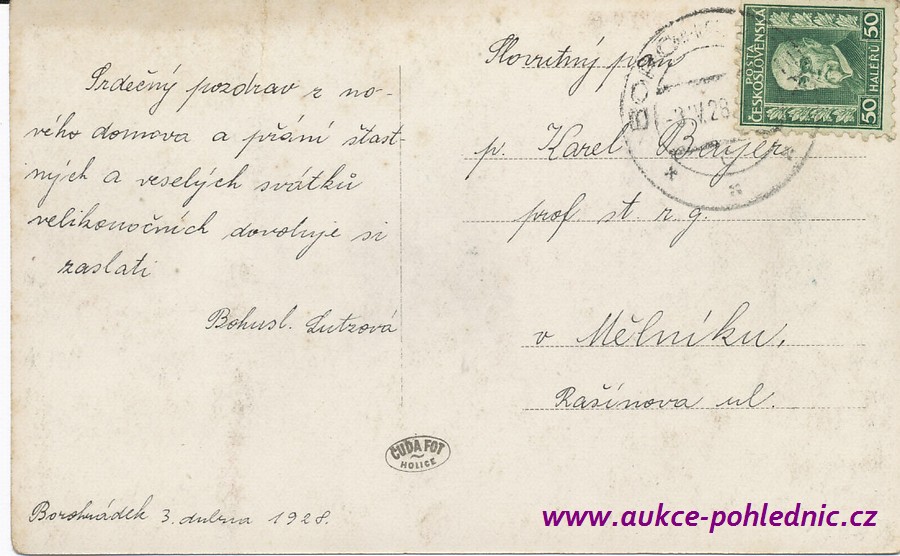 Srdečný pozdrav z no-
vého domova a přání šťast-
ných a veselých svátků
velikonočních dovoluje si
zaslati
Bohusl. Lutzová
Borohrádek 3. dubna 1928.
ČUDA FOT
HOLICE
Slovutný pán
p. Karel
prof. st. r. g.
v Mělníku,
Rašínova ul.
POŠTA
ČESKOSLOVENSKÁ
50 HALÉŘŮ 50
www.aukce-pohlednic.cz